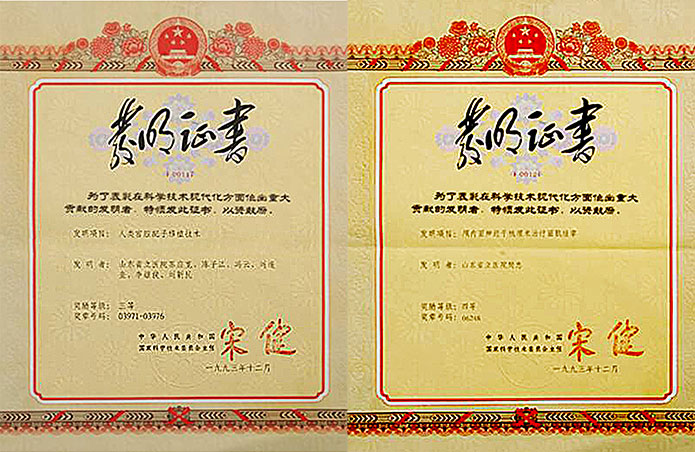 发明证书
为了表彰在科学技术现代化方面作出重大
贡献的发明者，特颁发此证书，以资鼓励。
发明项目： 人类宫腔配子移植技术
发 明 者： 山东省立医院苏应宽、陈子江、冯云、刘连
奖励等级： 三等
奖章号码： 03971-03976
中华人民共和国
国家科学技术委员会主任 宋健
一九九三年十二月
发明证书
为了表彰在科学技术现代化方面作出重大
贡献的发明者，特颁发此证书，以资鼓励。
发明项目： 颅内面神经
发 明 者： 山东省立医院
奖励等级： 四等
奖章号码： 06248
中华人民共和国
国家科学技术委员会主任 宋健
一九九三年十二月